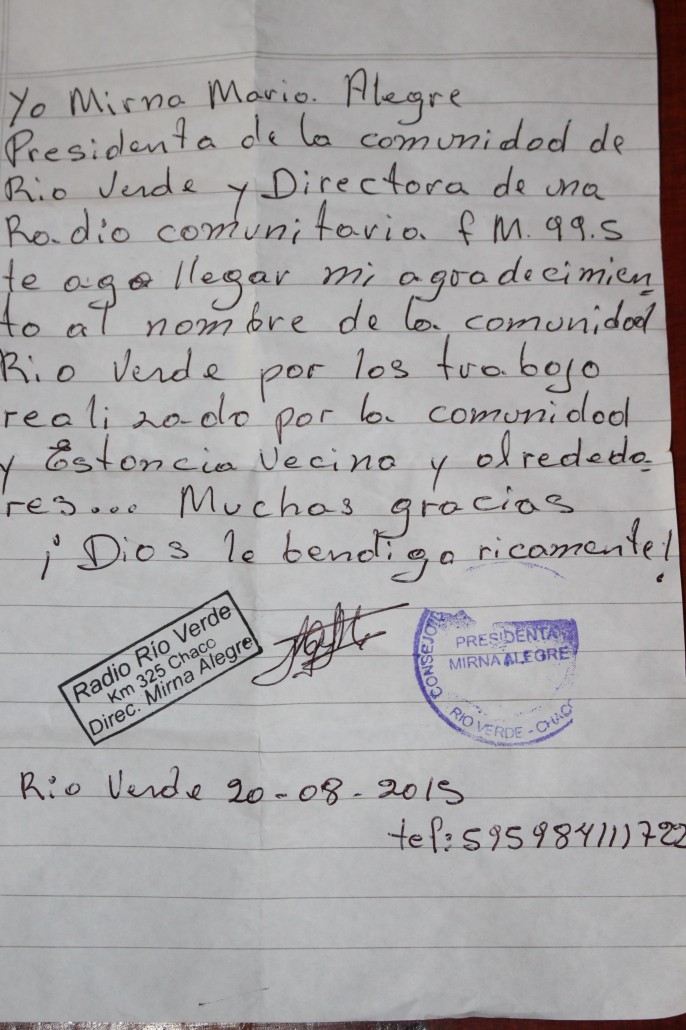 Yo Mirna Maria. Alegre
Presidenta de la comunidad de
Rio Verde y Directora de una
Radio comunitaria f M. 99.5
te ago llegar mi agradecimien
to al nombre de la comunidad
Rio Verde por los trabajo
realizado por la comunidad
y Estancia Vecina y alrededo
res... Muchas gracias
¡Dios le bendiga ricamente!
Radio Río Verde
Km 325 Chaco
Direc. Mirna Alegre
CONSEJO
PRESIDENTA
MIRNA ALEGRE
RIO VERDE - CHACO
Rio Verde 20-08-2015
tef: 595984111722